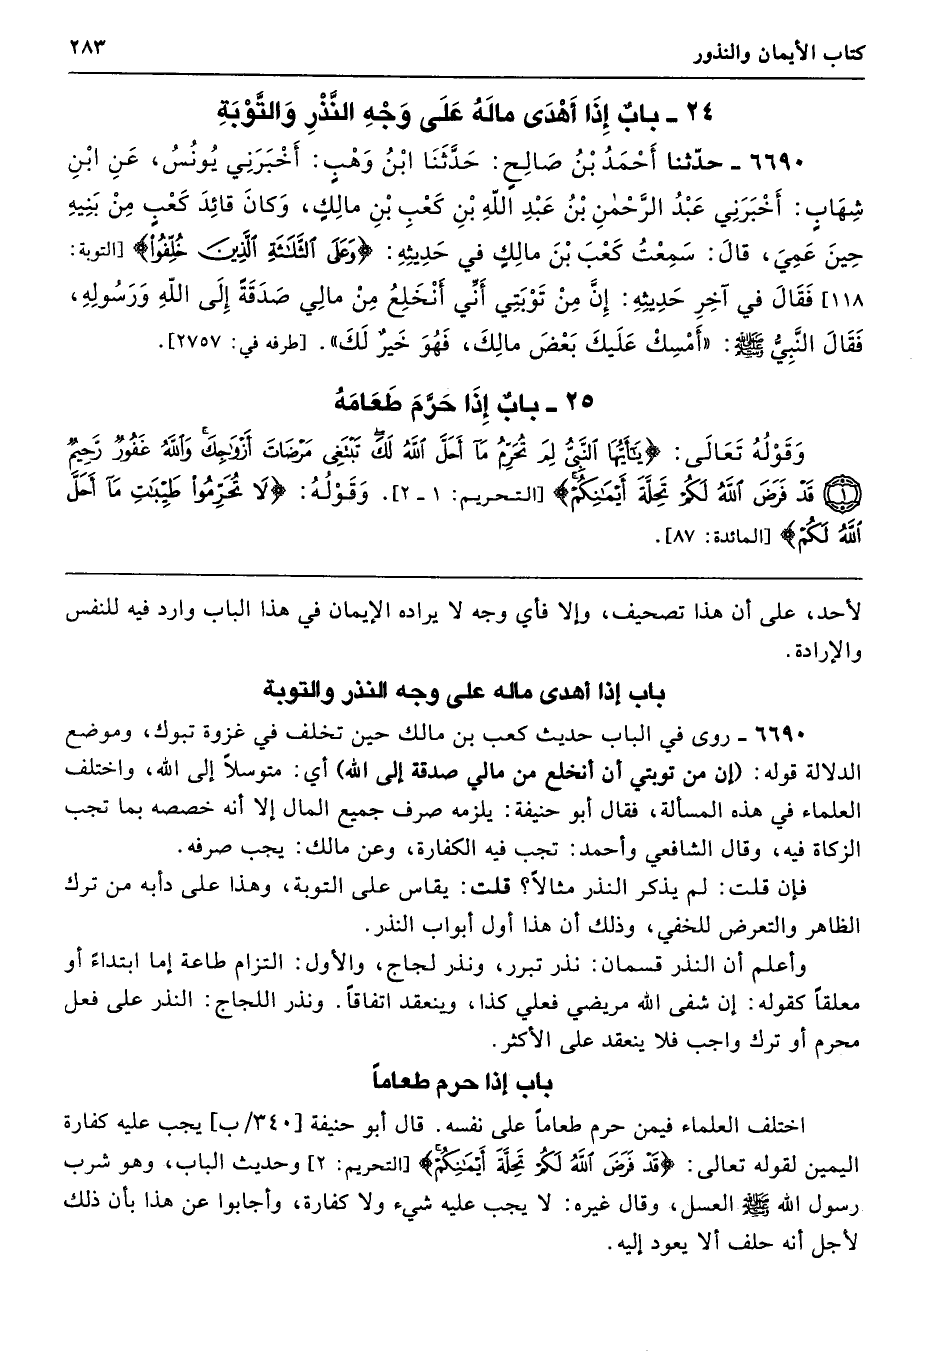 كتاب الأيمان والنذور
٢٨٣
٢٤ - بابٌ إِذَا أَهْدَى مالَهُ عَلَى وَجْهِ النَّذْرِ وَالتَّوْبَةِ
٦٦٩٠ - حدّثنا أَحْمَدُ بْنُ صَالِحٍ: حَدَّثَنَا ابْنُ وَهْبٍ: أَخْبَرَنِي يُونُسُ، عَنِ ابْنِ
شِهَابٍ: أَخْبَرَنِي عَبْدُ الرَّحْمٰنِ بْنُ عَبْدِ اللّهِ بْنِ كَعْبِ بْنِ مالِكٍ، وَكانَ قائِدَ كَعْبٍ مِنْ بَنِيهِ
حِينَ عَمِيَ، قالَ: سَمِعْتُ كَعْبَ بْنَ مالِكٍ في حَدِيثِهِ: ﴿وَعَلَى ٱلثَّلَٰثَةِ ٱلَّذِينَ خُلِّفُوا۟﴾ [التوبة:
١١٨] فَقَالَ في آخِرِ حَدِيثِهِ: إِنَّ مِنْ تَوْبَتِي أَنِّي أَنْخَلِعُ مِنْ مالِي صَدَقَةً إِلَى اللّهِ وَرَسُولِهِ،
فَقَالَ النَّبِيُّ ﷺ: «أَمْسِكْ عَلَيكَ بَعْضَ مالِكَ، فَهُوَ خَيرٌ لَكَ». [طرفه في: ٢٧٥٧].
٢٥ - بابٌ إِذَا حَرَّمَ طَعَامَهُ
وَقَوْلُهُ تَعَالَى: ﴿يَٰٓأَيُّهَا ٱلنَّبِىُّ لِمَ تُحَرِّمُ مَآ أَحَلَّ ٱللَّهُ لَكَ ۖ تَبْتَغِى مَرْضَاتَ أَزْوَٰجِكَ ۚ وَٱللَّهُ غَفُورٌ رَّحِيمٌ
(١) قَدْ فَرَضَ ٱللَّهُ لَكُمْ تَحِلَّةَ أَيْمَٰنِكُمْ ۚ﴾ [التحريم: ١ - ٢]. وَقَوْلُهُ: ﴿لَا تُحَرِّمُوا۟ طَيِّبَٰتِ مَآ أَحَلَّ
ٱللَّهُ لَكُمْ﴾ [المائدة: ٨٧].
لأحد، على أن هذا تصحيف، وإلا فأي وجه لا يراده الإيمان في هذا الباب وارد فيه للنفس
والإرادة.
باب إذا أهدى ماله على وجه النذر والتوبة
٦٦٩٠ - روى في الباب حديث كعب بن مالك حين تخلف في غزوة تبوك، وموضع
الدلالة قوله: (إن من توبتي أن أنخلع من مالي صدقة إلى الله) أي: متوسلاً إلى الله، واختلف
العلماء في هذه المسألة، فقال أبو حنيفة: يلزمه صرف جميع المال إلا أنه خصصه بما تجب
الزكاة فيه، وقال الشافعي وأحمد: تجب فيه الكفارة، وعن مالك: يجب صرفه.
فإن قلت: لم يذكر النذر مثالاً؟ قلت: يقاس على التوبة، وهذا على دأبه من ترك
الظاهر والتعرض للخفي، وذلك أن هذا أول أبواب النذر.
وأعلم أن النذر قسمان: نذر تبرر، ونذر لجاج، والأول: التزام طاعة إما ابتداءً أو
معلقاً كقوله: إن شفى الله مريضي فعلي كذا، وينعقد اتفاقاً. ونذر اللجاج: النذر على فعل
محرم أو ترك واجب فلا ينعقد على الأكثر.
باب إذا حرم طعاماً
اختلف العلماء فيمن حرم طعاماً على نفسه. قال أبو حنيفة [٣٤٠/ب] يجب عليه كفارة
اليمين لقوله تعالى: ﴿قَدْ فَرَضَ ٱللَّهُ لَكُمْ تَحِلَّةَ أَيْمَٰنِكُمْ ۚ﴾ [التحريم: ٢] وحديث الباب، وهو شرب
رسول الله ﷺ العسل، وقال غيره: لا يجب عليه شيء ولا كفارة، وأجابوا عن هذا بأن ذلك
لأجل أنه حلف ألا يعود إليه.